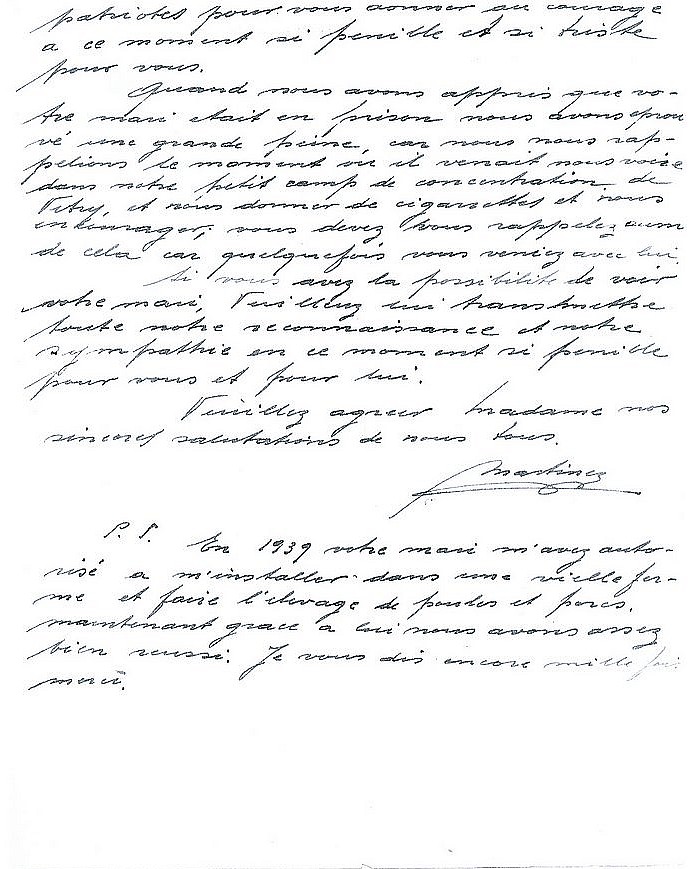 patriotes pour vous donner du courage
a ce moment si penille et si triste
pour vous.
Quand nous avons appris que vo-
tre mari etait en prison nous avons eprou
vé une grande peine, car nous nous rap-
pelions le moment ou il venait nous voire
dans notre petit camp de concentration de
et nous donner de cigarrettes et nous
entourager, vous devez vous rappelez aussi
de cela car quelquefois vous veniez avec lui.
Si vous avez la possibilite de voir
votre mari, Veuillez lui transmettre
toute notre reconnaissance et notre
sympathie en ce moment si penille
pour vous et pour lui.
Veuillez agreer Madame nos
sinceres salutations de nous tous.
Martinez
P. S. En 1939 votre mari m'avez auto-
risé a m'installer dans une vielle fer-
me et faire l'elevage de poules et porcs.
maintenant grace a lui nous avons assez
bien reussi. Je vous dis encore mille fois
merci.